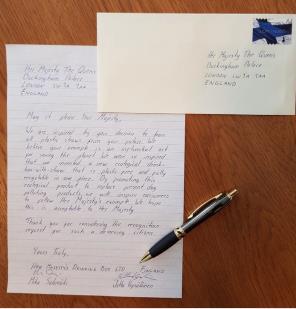 Her Majesty The Queen
Buckingham Palace
LONDON SW1A 1AA
ENGLAND
Her Majesty The Queen
Buckingham Palace
LONDON SW1A 1AA
ENGLAND
May it please Your Majesty,
We are inspired by your decision to ban
all plastic straws from your palace. We
believe your example is an important act
for saving the planet. We were so inspired
that we invented a new ecological drink-
that is plastic free and fully
recyclable in one piece. By promoting this
ecological product to replace present day
polluting products, we will inspire consumers
to follow Her Majesty's example. We hope
this is acceptable to Her Majesty.
Thank you for considering the
request for such a deserving citizen.
Yours Truly,
ENGLAND
Mike